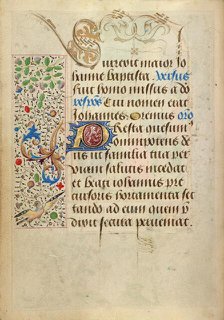 Surrexit maior Jo
hanne baptista. Versus
Fuit homo missus a do
Cui nomen erat
Johannes. Oremus
Presta quesum
omnipotens de
us ut familia tua per
viam salutis incedat
et beati iohannis pre
cursoris hortamenta sec
tando ad eum quem p
dixit secura perveniat.